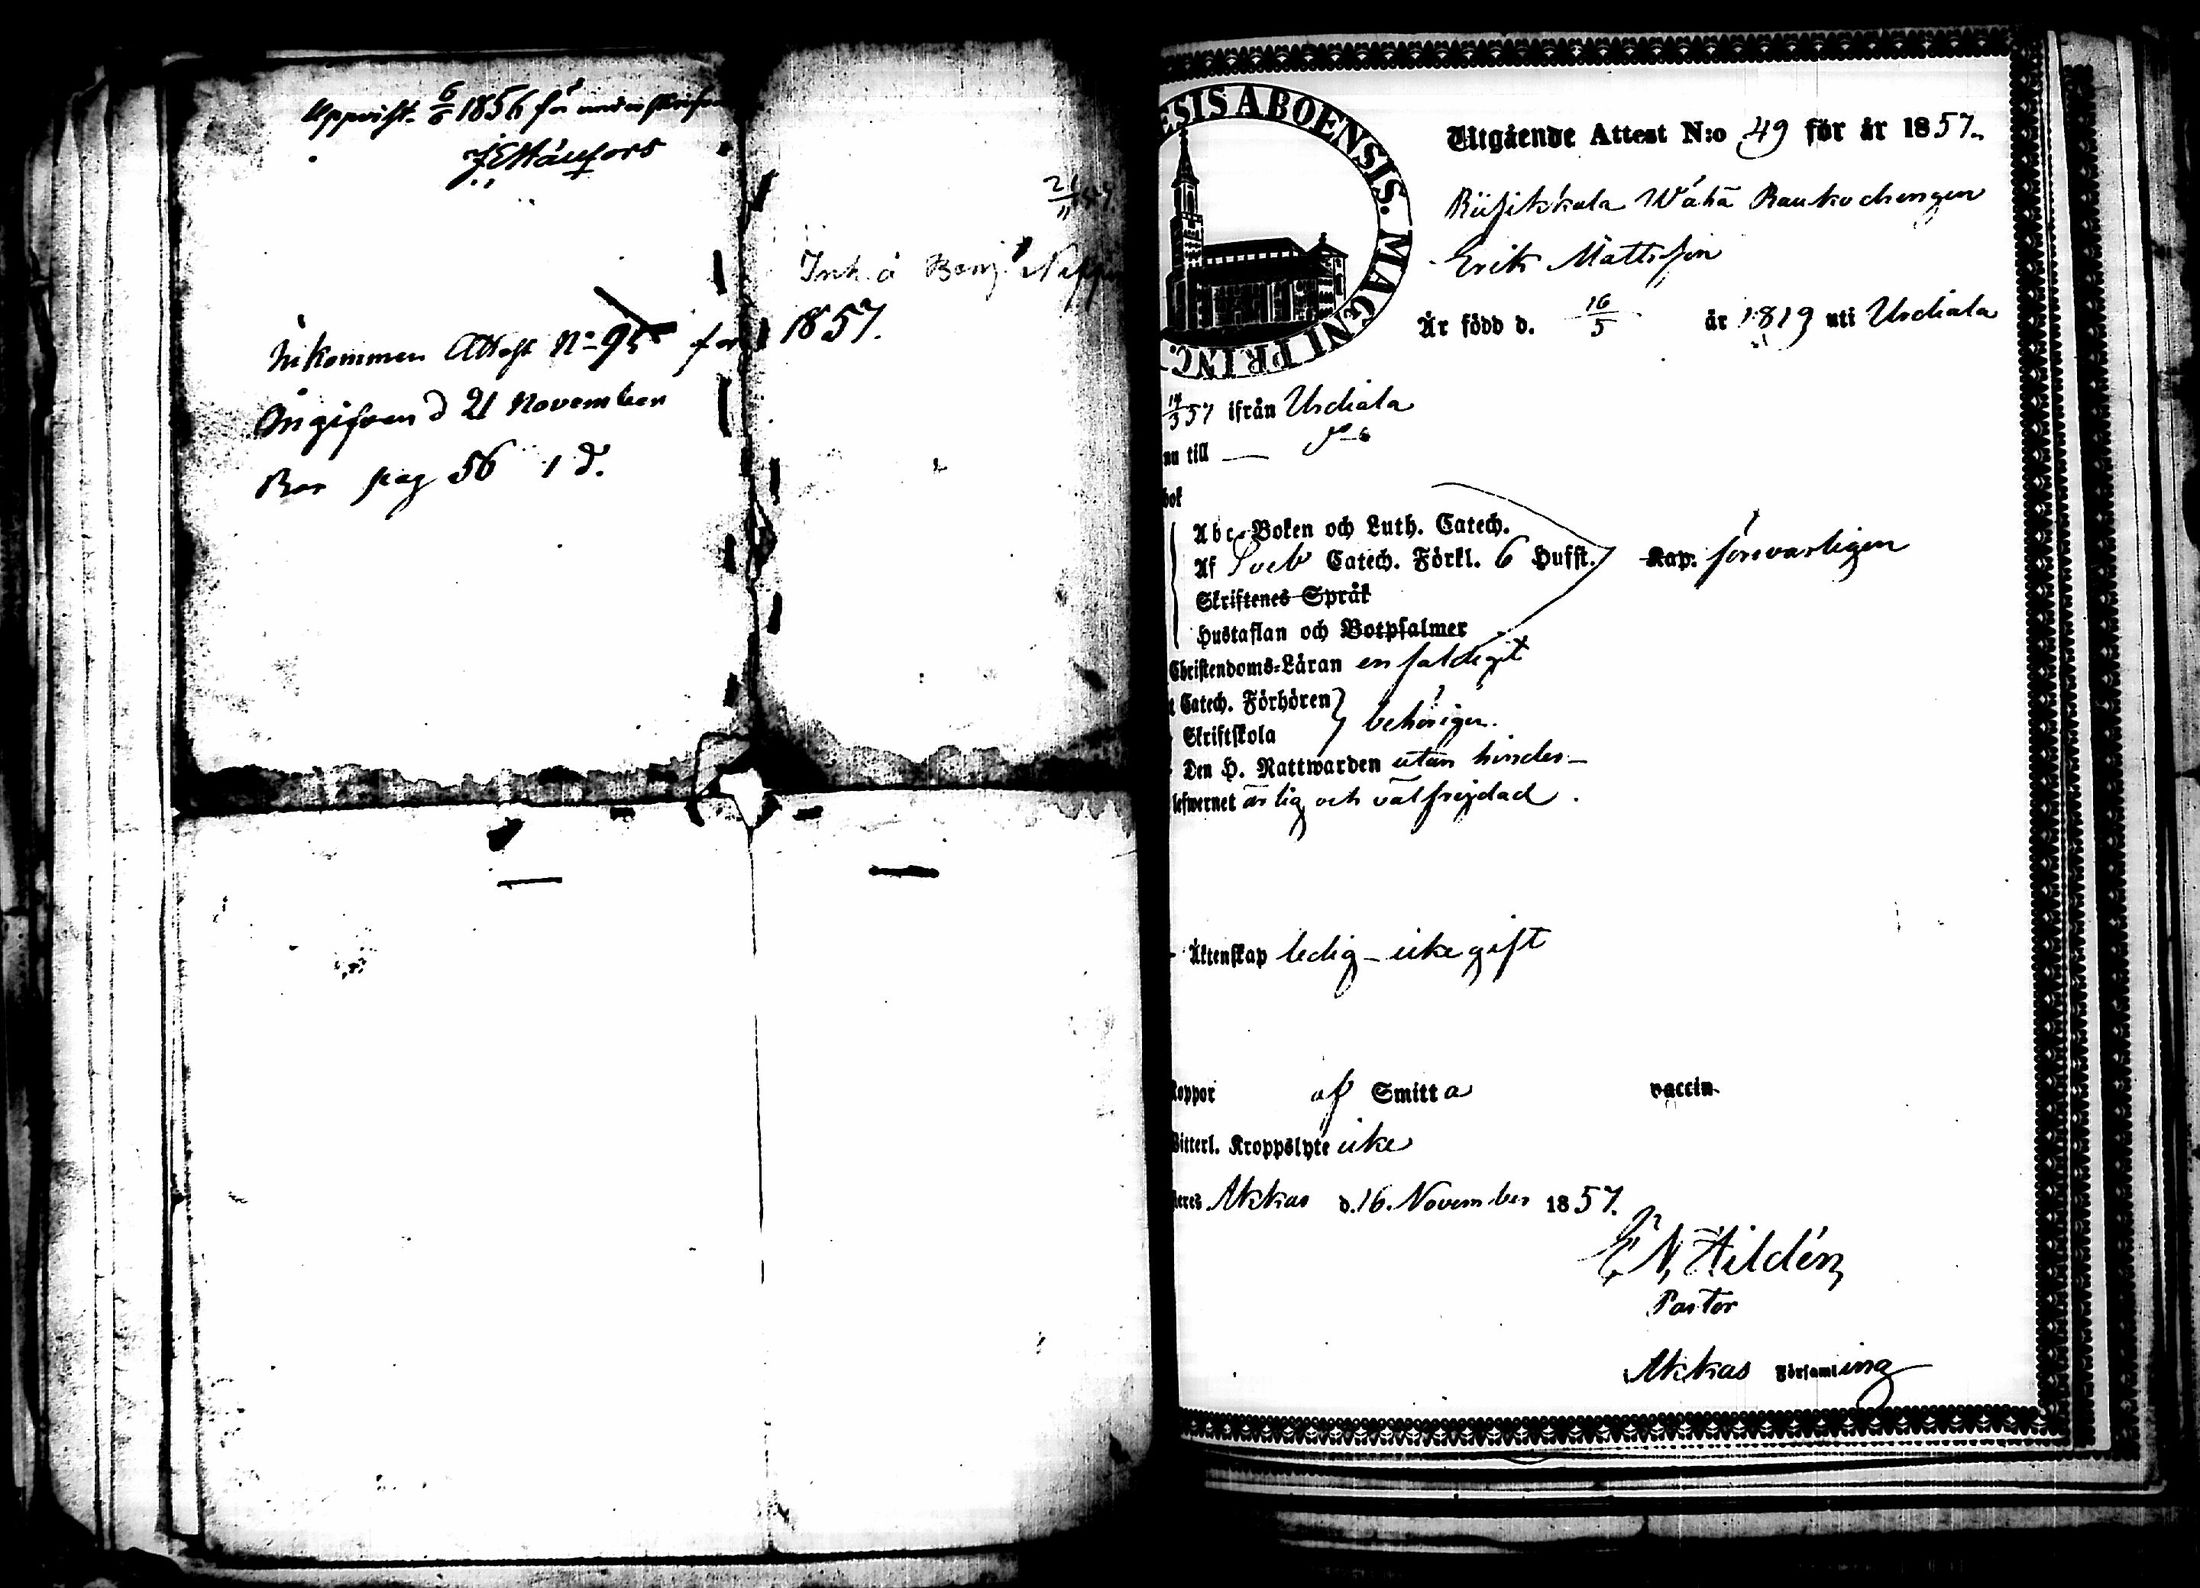 Uppvist. 6/6 1856 för underskrifven
2/11 57.
Inh. å Benj.
Inkommen Attest No 95 för 1857.
Ingifven d 21 November
Bor pag 56 1 d.
ESIS ABOENSIS. MAGNI PRINC.
Utgående Attest N:o 49 för år 1857.
Wähä Rauko drengen
Erik Mattsson
Är född d. 16/5 år 1819 uti Urdiala
57 ifrån Urdiala
nu till —
bok
Abc-Boken och Luth. Catech.
Af Sveb Catech. Förkl. 6 Hufst. Kap. försvarligen
Skriftenes Språk
Hustaflan och Botpsalmer
Christendoms-Läran enfaldigt
t Catech. Förhören
Skriftskola behörigen.
Den H. Nattwarden utan hinder
lefwernet ärlig och välfrejdad.
Äktenskap ledig - icke gift
Koppor af Smitta vaccin.
Witterl. Kroppslyte icke
teres Akkas d. 16. November 1857.
E. N. Hildén
Pastor
Akkas Församling